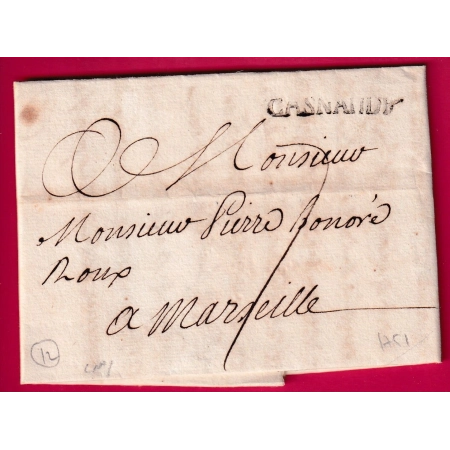 GASNANDY
A Monsieur
Monsieur Pierre honoré
Roux
a Marseille
12